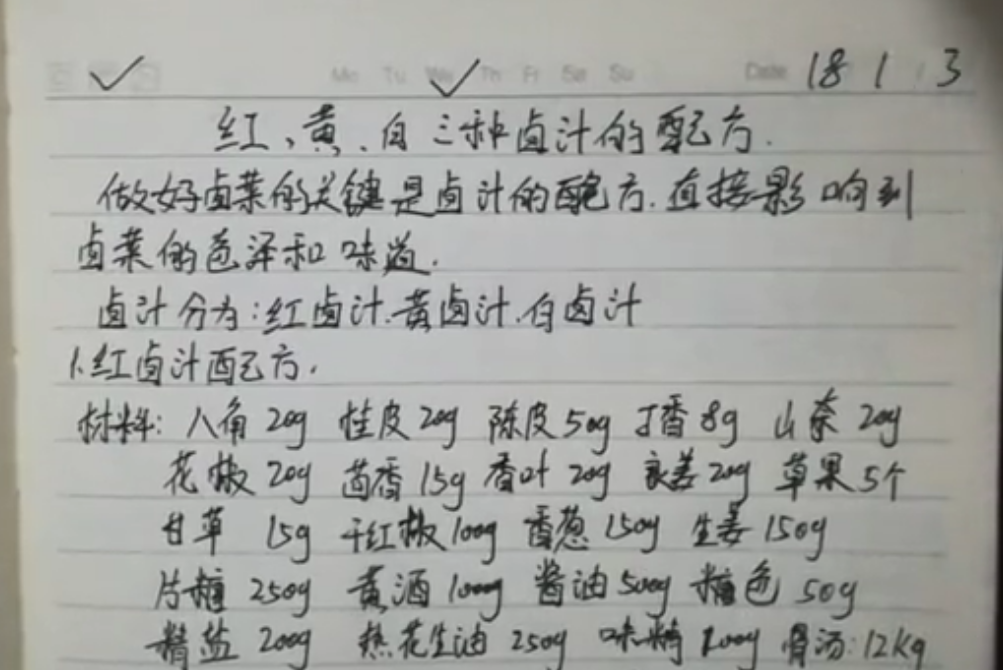 Mo Tu We Th Fr Sa Su Date 18 1 3
红、黄、白三种卤汁的配方.
做好卤菜的关键是卤汁的配方.直接影响到
卤菜的色泽和味道.
卤汁分为:红卤汁.黄卤汁.白卤汁
1.红卤汁配方.
材料: 八角 20g 桂皮 20g 陈皮 50g 丁香 8g 山奈 20g
花椒 20g 茴香 15g 香叶 20g 良姜 20g 草果 5个
甘草 15g 干红椒 100g 香葱 150g 生姜 150g
片糖 250g 黄酒 1000g 酱油 500g 糖色 50g
精盐 200g 热花生油 250g 味精 100g 骨汤:12kg